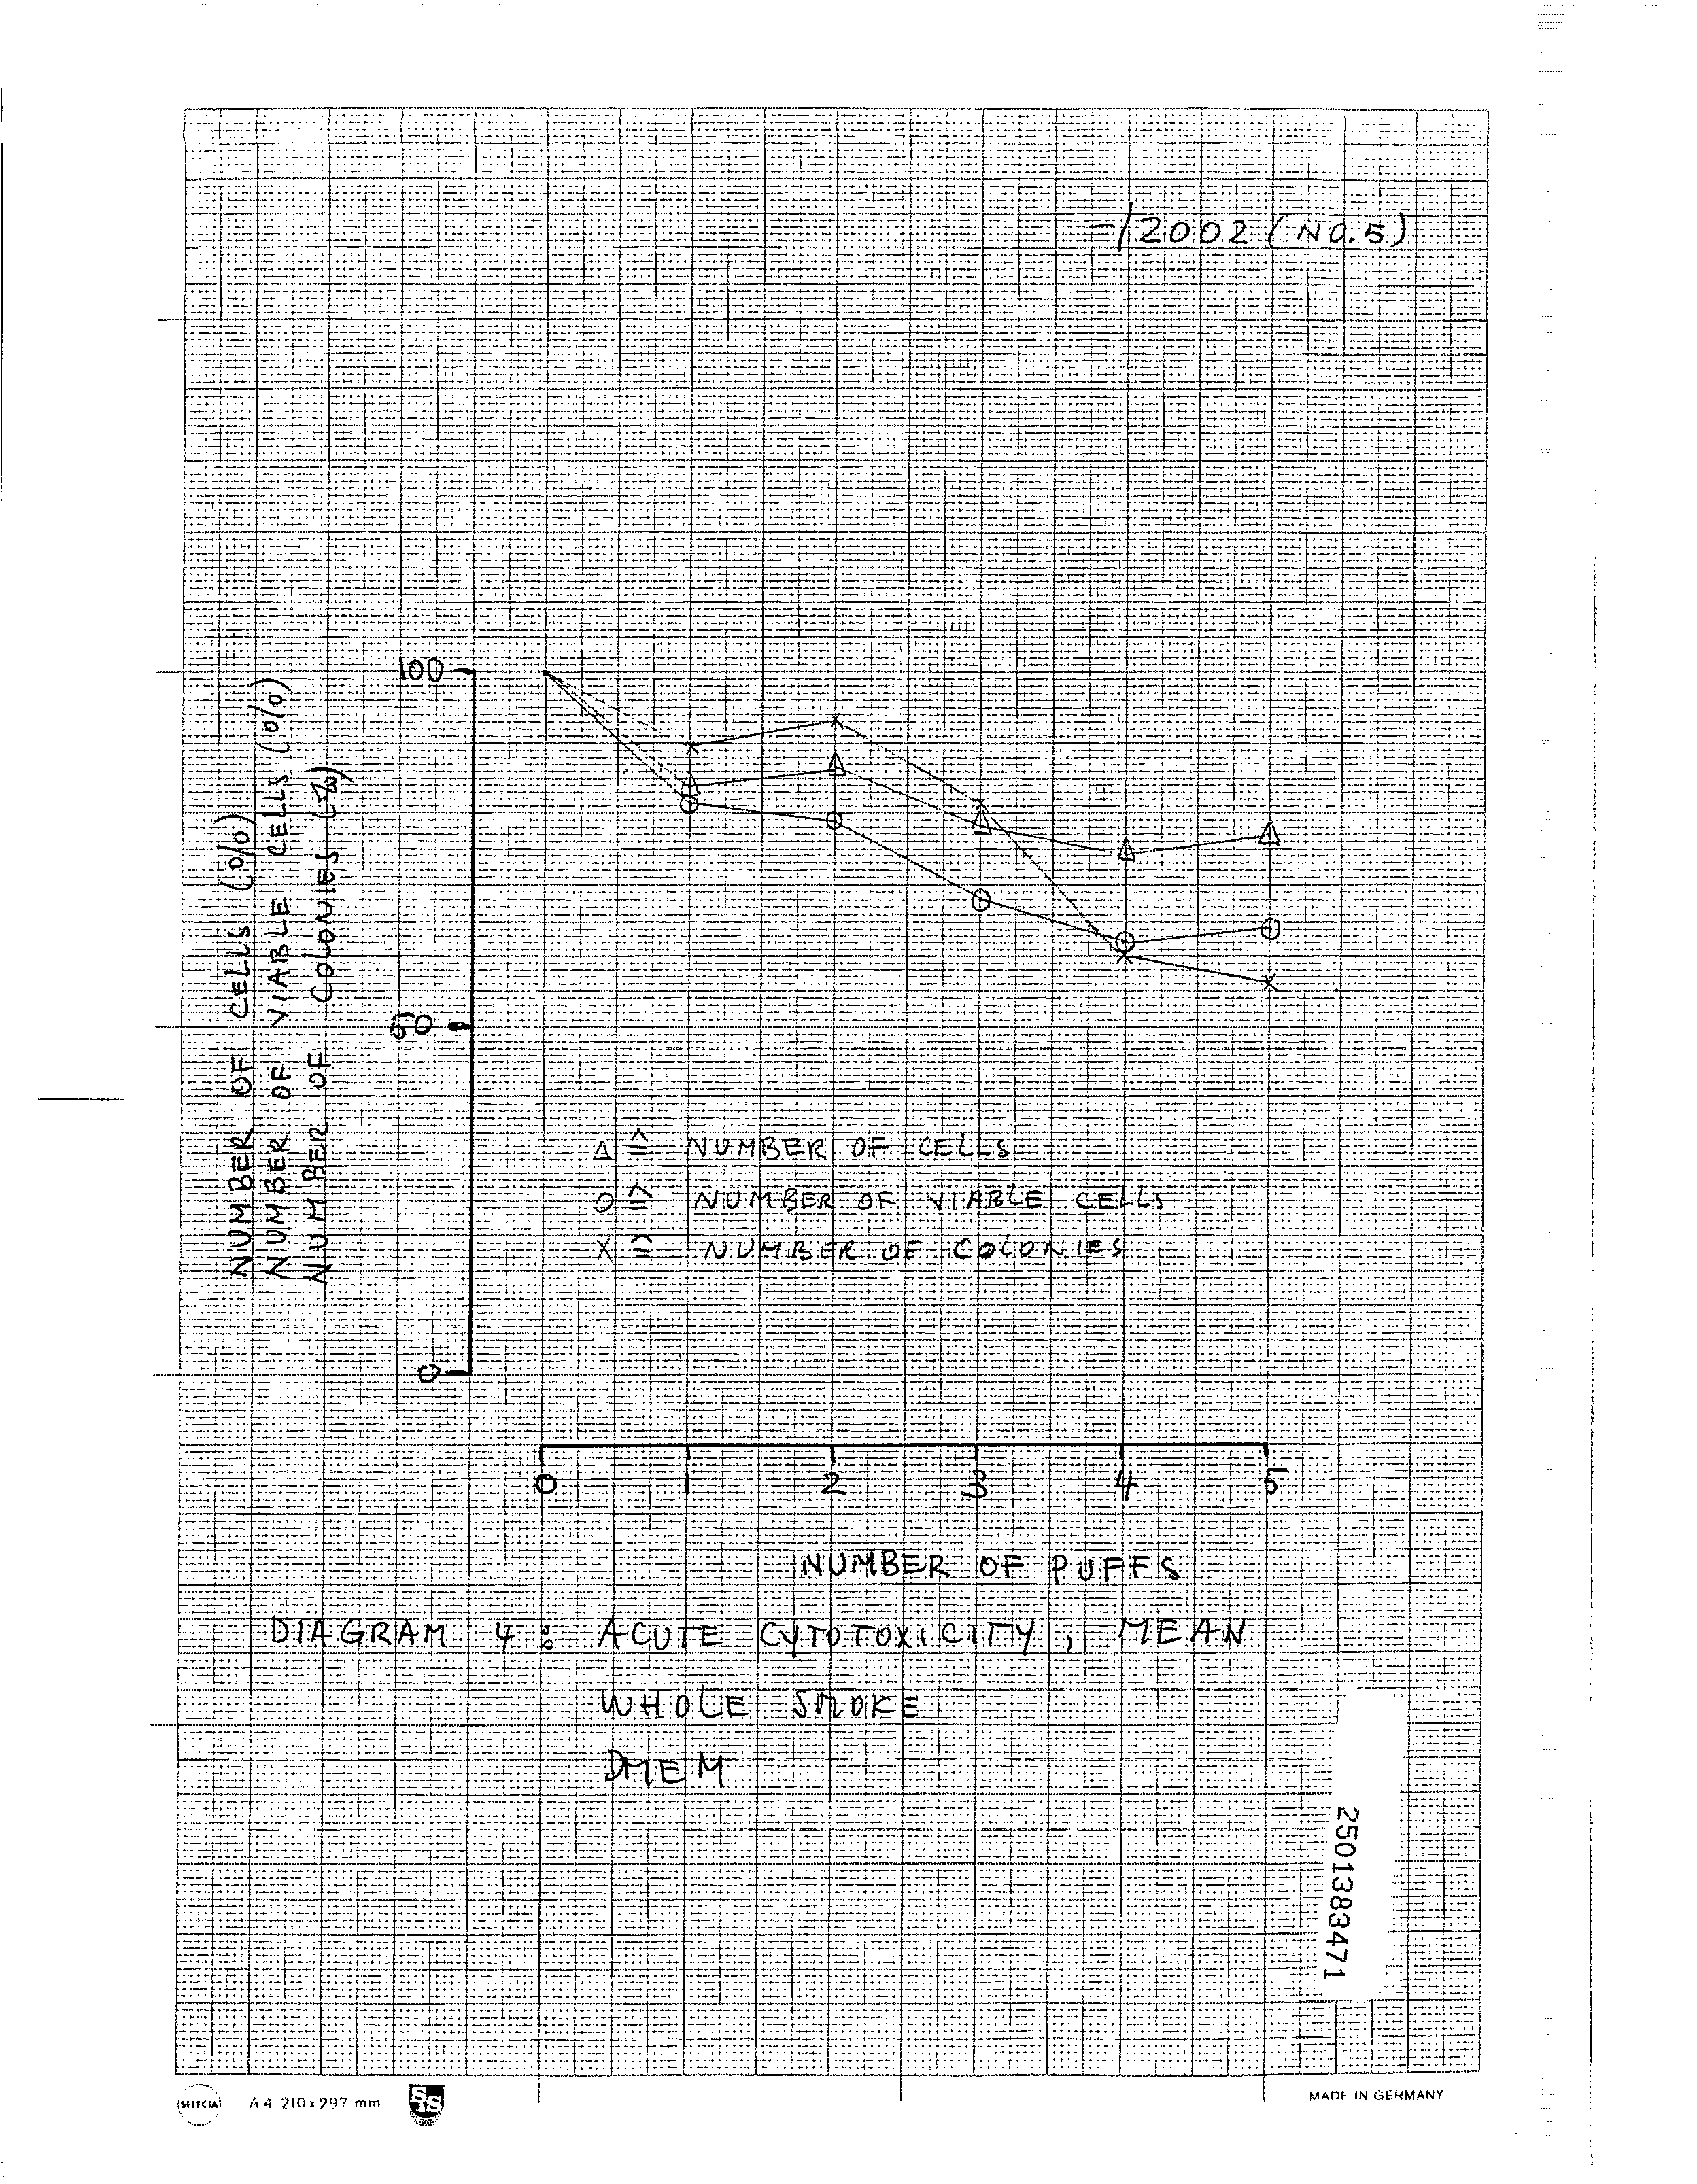 -/2002 (NO.5)
100
50
0
NUMBER OF CELLS (%)
NUMBER OF VIABLE CELLS (%)
NUMBER OF COLONIES (%)
Δ ≙ NUMBER OF CELLS
O ≙ NUMBER OF VIABLE CELLS
X ≙ NUMBER OF COLONIES
0 1 2 3 4 5
NUMBER OF PUFFS
DIAGRAM 4: ACUTE CYTOTOXICITY, MEAN
WHOLE SMOKE
DMEM
2501383471
SELECTA A4 210x297 mm S&S
MADE IN GERMANY